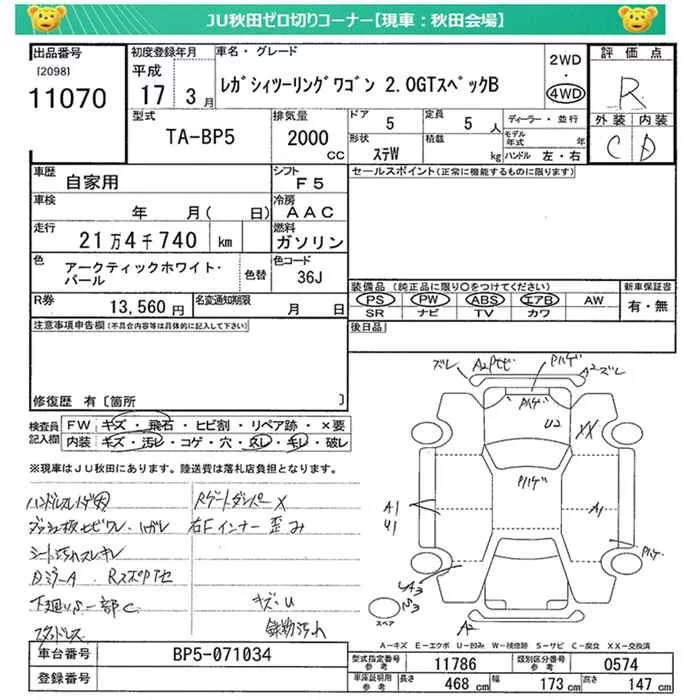 JU秋田ゼロ切りコーナー【現車：秋田会場】
出品番号
[2098]
11070
初度登録年月
平成
17 3月
車名・グレード
レガシィツーリングワゴン 2.0GTスペックB
2WD
・
4WD
評価点
R
外装 内装
C D
型式
TA-BP5
排気量
2000
CC
ドア 5
定員 5 人
形状
ステW
積載
kg
ディーラー・並行
モデル年式 年
ハンドル 左・右
車歴
自家用
シフト
F5
車検
年 月( 日)
冷房
AAC
走行
21万4千740 km
燃料
ガソリン
色
アークティックホワイト・
パール
色替
色コード
36J
R券
13,560円
名変通知期限
月 日
セールスポイント(正常に機能するものに限ります)
装備品 (純正品に限り○をつけてください)
PS PW ABS エアB AW
SR ナビ TV カワ
新車保証書
有・無
後日品
注意事項申告欄(不具合内容等は具体的に記入して下さい)
修復歴 有〔箇所 〕
検査員
記入欄
FW キズ・飛石・ヒビ割・リペア跡・×要
内装 キズ・汚レ・コゲ・穴・灰レ・モレ・破レ
※現車はJU秋田にあります。陸送費は落札店負担となります。
Rゲートダンパー X
右Fインナー歪み
ダッシュ板ヒビワレ・ハガレ
シート汚れスレキレ
下廻りS一部C
キズ・U
スタッドレス
ズレ
A2
Pハゲ
A2ズレ
Pハゲ
U2
XX
Pハゲ
A1
U1
A1
Pハゲ
A2
スペア
A－キズ E－エクボ U－凹み W－補修跡 S－サビ C－腐食 XX－交換済
車台番号
BP5-071034
登録番号
型式指定番号
参考
11786
類別区分番号
参考
0574
車庫証明用
参考
長さ 468 cm
幅 173 cm
高さ 147 cm